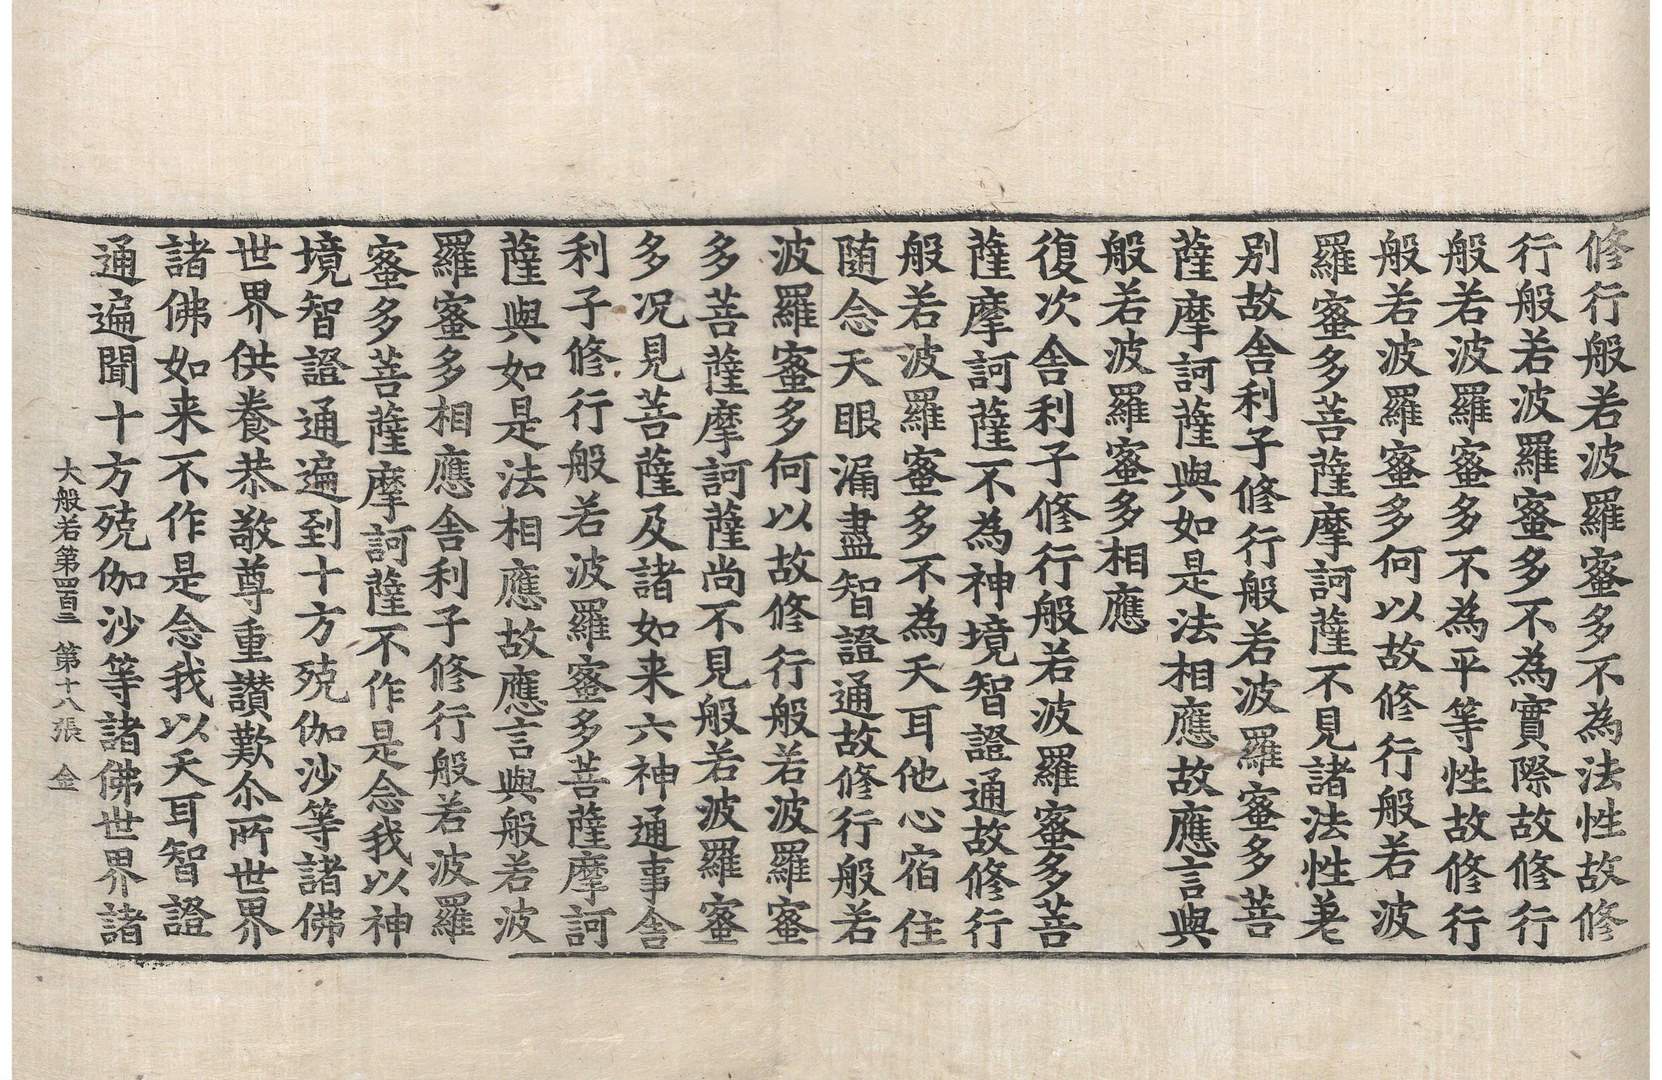 修行般若波羅蜜多不為法性故修
行般若波羅蜜多不為實際故修行
般若波羅蜜多不為平等性故修行
般若波羅蜜多何以故修行般若波
羅蜜多菩薩摩訶薩不見諸法性差
別故舍利子修行般若波羅蜜多菩
薩摩訶薩與如是法相應故應言與
般若波羅蜜多相應
復次舍利子修行般若波羅蜜多菩
薩摩訶薩不為神境智證通故修行
般若波羅蜜多不為天耳他心宿住
随念天眼漏盡智證通故修行般若
波羅蜜多何以故修行般若波羅蜜
多菩薩摩訶薩尚不見般若波羅蜜
多况見菩薩及諸如来六神通事舍
利子修行般若波羅蜜多菩薩摩訶
薩與如是法相應故應言與般若波
羅蜜多相應舍利子修行般若波羅
蜜多菩薩摩訶薩不作是念我以神
境智證通遍到十方殑伽沙等諸佛
世界供養恭敬尊重讃歎尒所世界
諸佛如来不作是念我以天耳智證
通遍聞十方殑伽沙等諸佛世界諸
大般若第四百二 第十八張 金